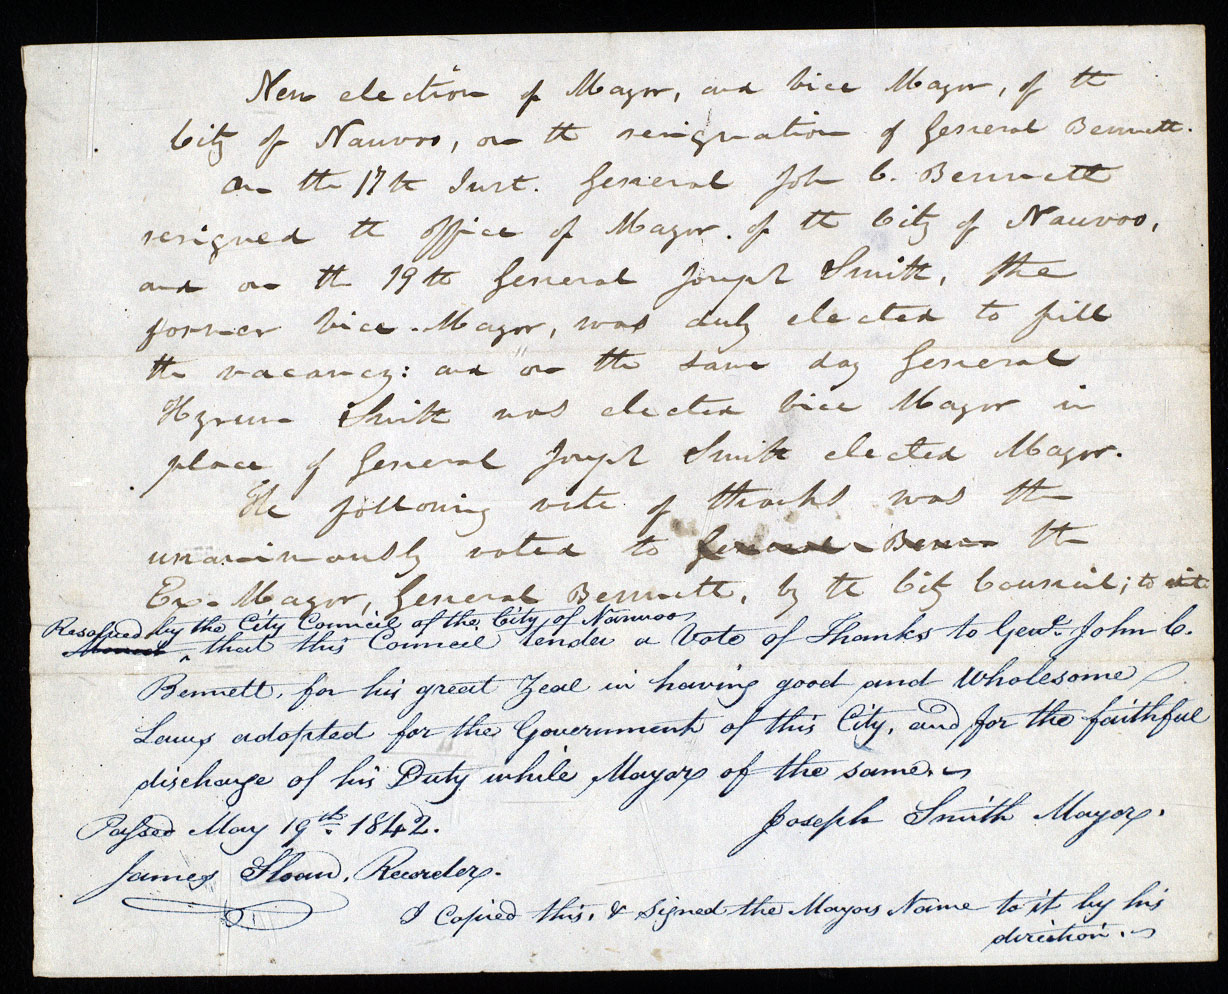 New election of Mayor, and vice Mayor, of the
City of Nauvoo, on the resignation of General Bennett.
On the 17th Inst. General John C. Bennett
resigned the office of Mayor. of the City of Nauvoo,
and on the 19th General Joseph Smith, the
former vice-Mayor, was duly elected to fill
the vacancy: and on the same day General
Hyrum Smith was elected vice Mayor in
place of General Joseph Smith elected Mayor.
The following vote of thanks was the
unanimously voted to General Benn the
Ex-Mayor, General Bennett, by the City Council; to wit:
Resolved by the City Council of the City of Nauvoo
that this Council tender a Vote of Thanks to Genl. John C.
Bennett, for his great Zeal in having good and Wholesome
Laws adopted for the Government of this City, and for the faithful
discharge of his Duty while Mayor of the same.
Passed May 19th. 1842.
Joseph Smith Mayor.
James Sloan, Recorder.
I Copied this, & signed the Mayors Name to it by his
direction.